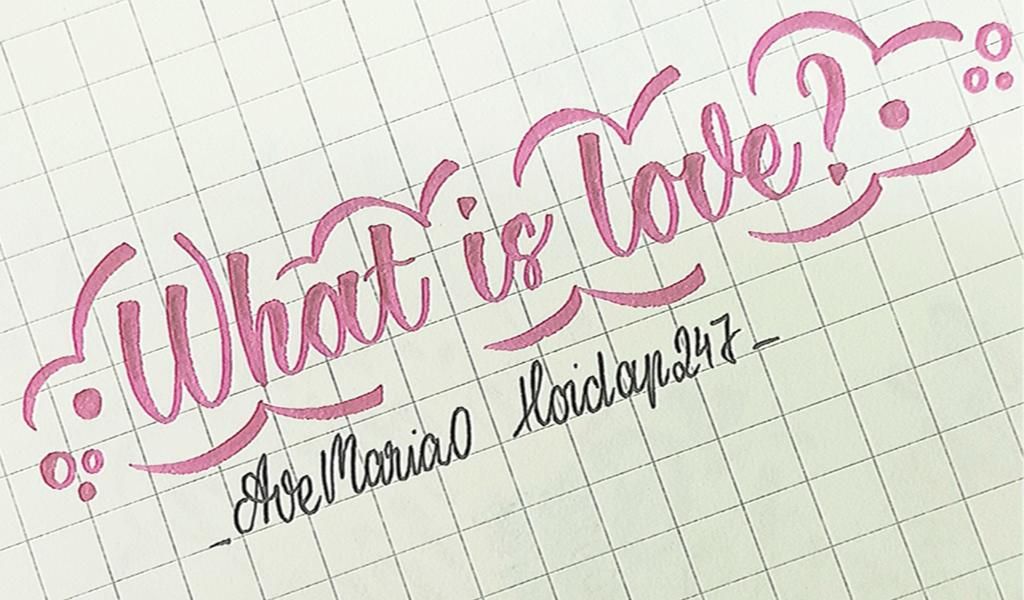 What is love?
_AveMaria0 Hoidap247_